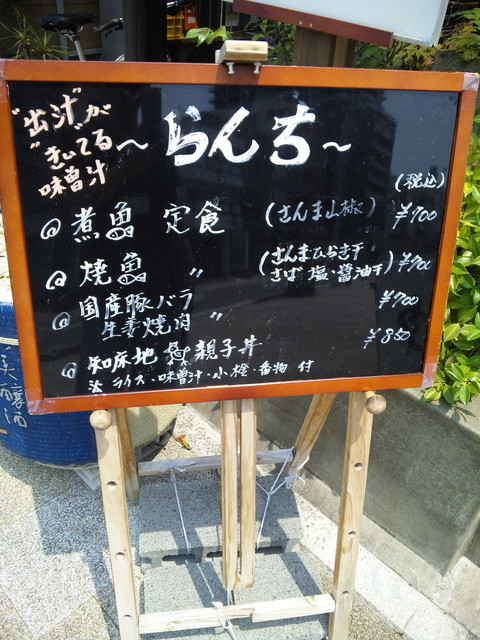 "出汁"が
"きいてる
味噌汁
～らんち～
(税込)
@煮魚 定食 (さんま山椒) ¥700
@焼魚 〃 (さんまひらき干
さば 塩・醤油干) ¥700
@国産豚バラ
生姜焼肉 〃 ¥700
@知床地鶏親子丼 ¥850
※ライス・味噌汁・小桧・香物 付
醸酒